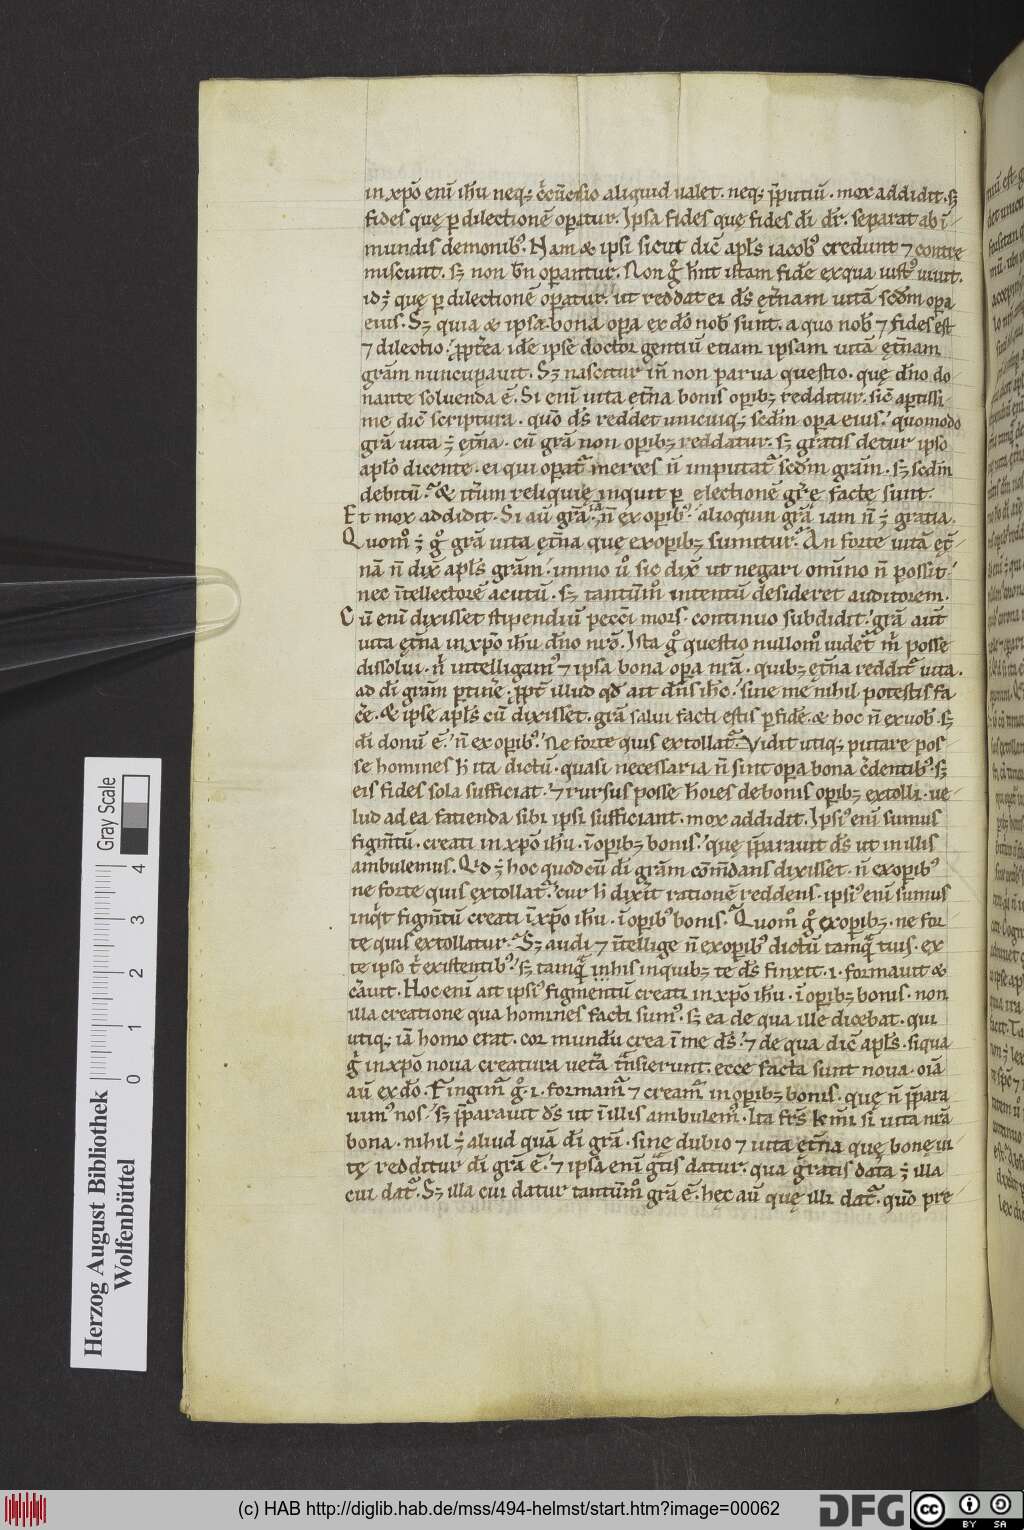 in xp̄o enī ih̄u neq; c̄cūcisio aliquid ualet. neq; p̄putiū. mox addidit. sꝫ
fides quę ꝑ dilectionē oꝑatur. Ipsa fides quę fides dī dr̄. separat ab ī
mundis demonibꝰ. Nam & ipsi sicut dic̄ apl̄s iacobꝰ credunt ⁊ contre
miscunt. sꝫ non bn̄ oꝑantur. Non gͦ hn̄t istam fidē ex qua iustꝰ uiuit.
id ē quę ꝑ dilectionē oꝑatur. ut reddat ei dꝰs ęt̄nam uitā scd̄m oꝑa
eius. Sꝫ quia & ipsa bona oꝑa ex dō nob̄ sunt. a quo nob̄ ⁊ fides est
⁊ dilectio. ꝓpt̄ea idē ipse doctor gentiū etiam ipsam uitā ęt̄nam
grām nuncupauit. Sꝫ nascitur in̄ non parua questio. quę dn̄o do
nante soluenda ē. Si enī uita ęt̄na bonis oꝑibꝫ redditur. sic̄ aꝑtissi
me dic̄ scriptura. quō ds̄ reddet unicuiq; scd̄m oꝑa eius. quomodo
grā uita ē ęt̄na. cū grā non oꝑibꝫ reddatur. sꝫ gratis detur ipso
apl̄o dicente. ei qui oꝑat̄ merces n̄ imputat̄ scd̄m grām. sꝫ scd̄m
debitū. & it̄um reliquię inquit ꝑ electionē gr̄ę factę sunt.
Et mox addidit. Si aū grā. iā n̄ ex oꝑibꝰ. alioquin grā iam n̄ ē gratia.
Quomͦ ē gͦ grā uita ęt̄na quę ex oꝑibꝫ sumitur. An forte uitā ęt̄
nā n̄ dix̄ apl̄s grām. immo uͦ sic dix̄ ut negari omīno n̄ possit.
nec īntellectorē acutū. sꝫ tantūmͦ intentū desideret auditorem.
Cū enī dixisset stipendiū pecc̄i mors. continuo subdidit. grā aut̄
uita ęt̄na in xp̄o ih̄u dn̄o nr̄o. Ista gͦ questio nullomͦ uidet̄ m̄ posse
dissolui. n̄ intelligamꝰ ⁊ ipsa bona oꝑa nr̄a. quibꝫ ęt̄na reddit̄ uita.
ad dī grām ꝑtinē. ꝓpt̄ illud qd̄ ait dn̄s ih̄c. sine me nihil potestis fa
c̄e. & ipse apl̄s cū dixisset. grā salui facti estis ꝑ fidē. & hoc n̄ ex uob̄. sꝫ
dī donū ē. n̄ ex oꝑibꝰ. Ne forte quis extollat̄. Vidit utiq; putare pos
se homines h̄ ita dictū. quasi necessaria n̄ sint oꝑa bona c̄dentibꝰ. sꝫ
eis fides sola sufficiat. ⁊ rursus posse hōies de bonis oꝑibꝫ extolli. ue
lud ad ea fatienda sibi ipsi sufficiant. mox addidit. Ipsiꝰ enī sumus
figm̄tū. creati in xp̄o ih̄u. ī oꝑibꝫ bonis. quę p̄parauit ds̄ ut in illis
ambulemus. Qd̄ ē hoc quod cū dī grām cōmdans dixisset. n̄ ex oꝑibꝰ
ne forte quis extollat̄. cur h̄ dix̄it rationē reddens. ipsiꝰ enī sumus
inq̄t figm̄tū creati ī xp̄o ih̄u. ī oꝑibꝰ bonis. Quomͦ gͦ ex oꝑibꝫ. ne for
te quis extollatur. Sꝫ audi ⁊ īntellige n̄ ex oꝑibꝰ dictū tamq̄ tuis. ex
te ipso t̄ existentibꝰ. sꝫ tamq̄ in his in quibꝫ te ds̄ finxit. .i. formauit &
c̄auit. Hoc enī ait ipsiꝰ figmentū creati in xp̄o ih̄u. ī oꝑibꝫ bonis. non
illa creatione qua homines facti sumꝰ. sꝫ ea de qua ille dicebat. qui
utiq; iā homo erat. cor mundū crea ī me ds̄. ⁊ de qua dic̄ apl̄s. siqua
gͦ in xp̄o noua creatura uet̄a t̄nsierunt. ecce facta sunt noua. oīa
aū ex dō. Fingimꝰ gͦ .i. formamꝰ ⁊ creamꝰ in oꝑibꝫ bonis. quę n̄ p̄para
uimꝰ nos. sꝫ p̄parauit ds̄ ut ī illis ambulemꝰ. Ita frs̄ km̄i si uita nr̄a
bona. nihil ē aliud quā dī grā. sine dubio ⁊ uita ęt̄na quę bonę ui
tę redditur dī grā ē. ⁊ ipsa enī ḡtis datur. qua gratis data ē illa
cui dat̄. Sꝫ illa cui datur tantūmͦ grā ē. hęc aū quę illi dat̄. quō pre
Herzog August Bibliothek
Wolfenbüttel
0 1 2 3 4
Gray Scale
(c) HAB http://diglib.hab.de/mss/494-helmst/start.htm?image=00062
DFG
cc BY SA